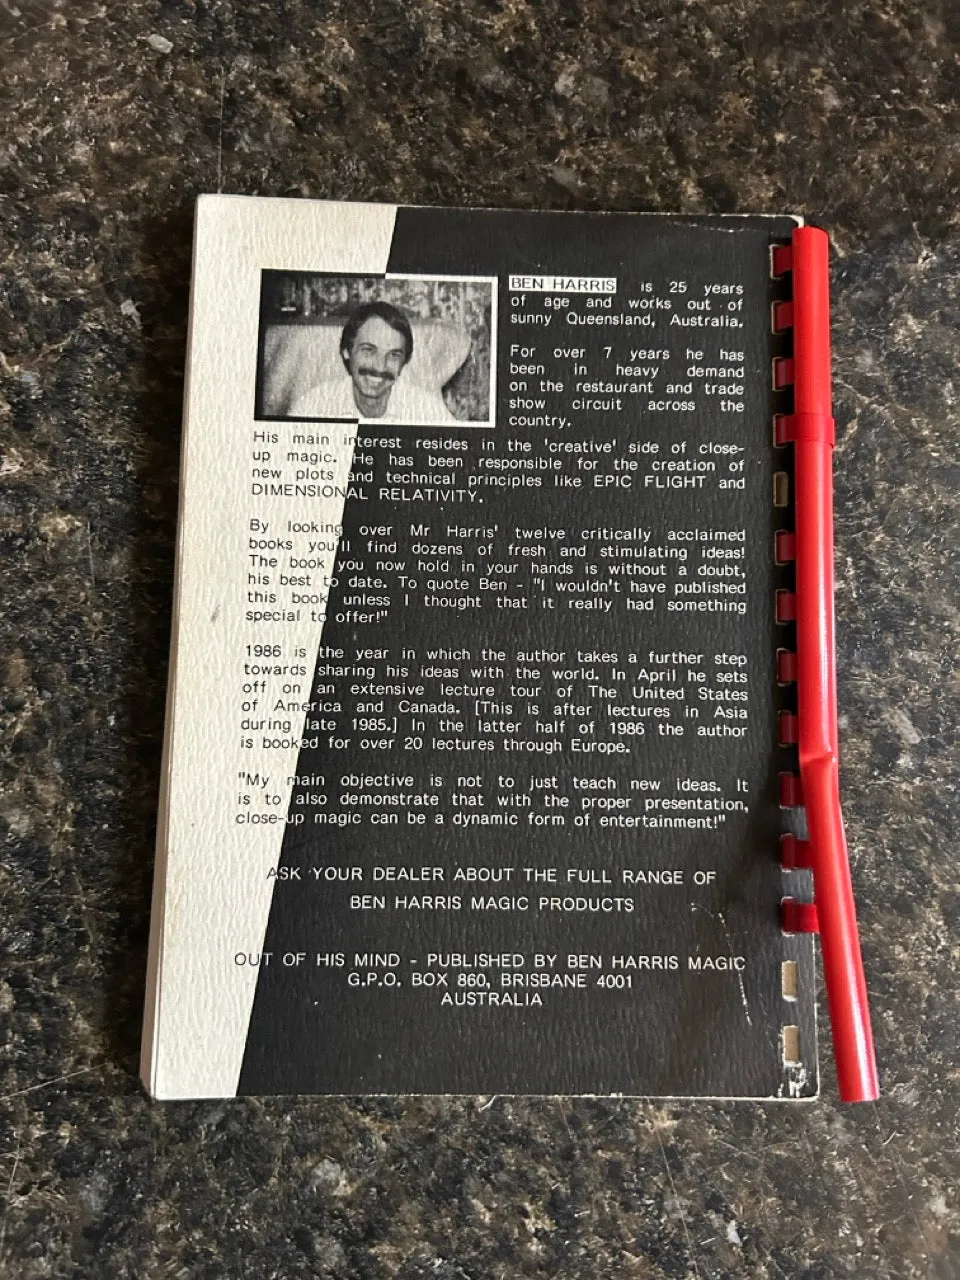 BEN HARRIS is 25 years
of age and works out of
sunny Queensland, Australia.
For over 7 years he has
been in heavy demand
on the restaurant and trade
show circuit across the
country.
His main interest resides in the 'creative' side of close-
up magic. He has been responsible for the creation of
new plots and technical principles like EPIC FLIGHT and
DIMENSIONAL RELATIVITY.
By looking over Mr Harris' twelve critically acclaimed
books you'll find dozens of fresh and stimulating ideas!
The book you now hold in your hands is without a doubt,
his best to date. To quote Ben - "I wouldn't have published
this book unless I thought that it really had something
special to offer!"
1986 is the year in which the author takes a further step
towards sharing his ideas with the world. In April he sets
off on an extensive lecture tour of The United States
of America and Canada. [This is after lectures in Asia
during late 1985.] In the latter half of 1986 the author
is booked for over 20 lectures through Europe.
"My main objective is not to just teach new ideas. It
is to also demonstrate that with the proper presentation,
close-up magic can be a dynamic form of entertainment!"
ASK YOUR DEALER ABOUT THE FULL RANGE OF
BEN HARRIS MAGIC PRODUCTS
OUT OF HIS MIND - PUBLISHED BY BEN HARRIS MAGIC
G.P.O. BOX 860, BRISBANE 4001
AUSTRALIA